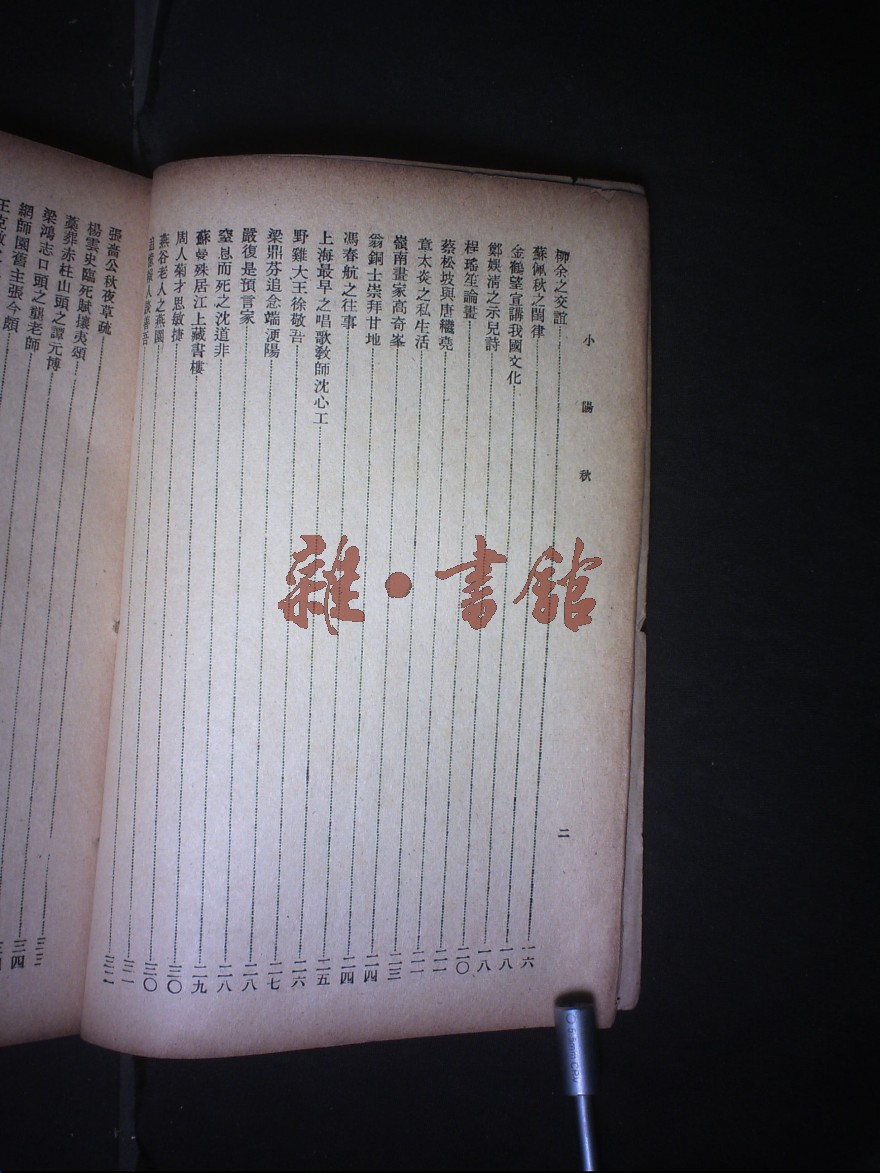 小陽秋
二
柳余之交誼 一六
蘇佩秋之閫律 一八
金鶴望宣講我國文化 一八
鄭娛清之示兒詩 二〇
程瑤笙論畫 二一
蔡松坡與唐繼堯 二一
章太炎之私生活 二三
嶺南畫家高奇峯 二四
翁銅士崇拜甘地 二四
馮春航之往事 二五
上海最早之唱歌教師沈心工 二六
野雞大王徐敬吾 二七
梁鼎芬追念端浭陽 二八
嚴復是預言家 二八
窒息而死之沈道非 二九
蘇曼殊居江上藏書樓 三〇
周人菊才思敏捷 三〇
燕谷老人之燕園 三一
人談善吾 三二
張嗇公秋夜草疏 三三
楊雲史臨死賦攘夷頌 三四
藁葬赤柱山頭之譚元博
梁鴻志口頭之龔老師
網師園舊主張今頗
王克敏
雜·書館
5.5mm